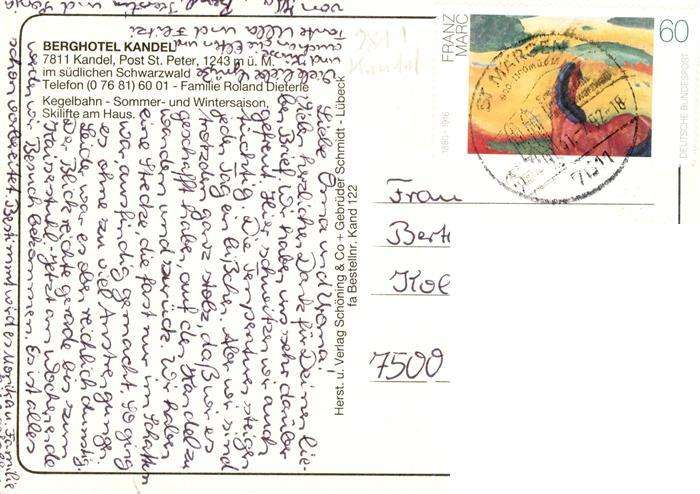 BERGHOTEL KANDEL
7811 Kandel, Post St. Peter, 1243 m ü. M.
im südlichen Schwarzwald
Telefon (0 76 81) 60 01 - Familie Roland Dieterle
Kegelbahn - Sommer- und Wintersaison,
Skilifte am Haus.
Liebe Oma und Uroma!
Vielen herzlichen Dank für Deinen lie-
ben Brief. Wir haben uns sehr darüber
gefreut. Hier schwitzen wir auch
tüchtig. Die Temperaturen steigen
jeden Tag ein bißchen. Aber wir sind
trotzdem ganz stolz, daß wir es
geschafft haben, auf den Kandel zu
wandern und zurück. Wir haben
eine Strecke die fast nur im Schatten
war ausfindig gemacht. So ging
es ohne zu viel Anstrengungen.
Leider war es aber reichlich dunstig.
Der Blick reichte gerade bis zum
Kaiserstuhl. Jetzt am Wochenende
werden wir Besuch bekommen. Es ist alles
schon vorbereitet. Bestimmt wird es Monika u. Familie
Herst. u. Verlag Schöning & Co + Gebrüder Schmidt - Lübeck
fa Bestellnr. Kand 122
FRANZ
MARC
1880 - 1916
60
DEUTSCHE BUNDESPOST
ST. MÄRGEN
-18
7811
Frau
Bert
Kol
7500